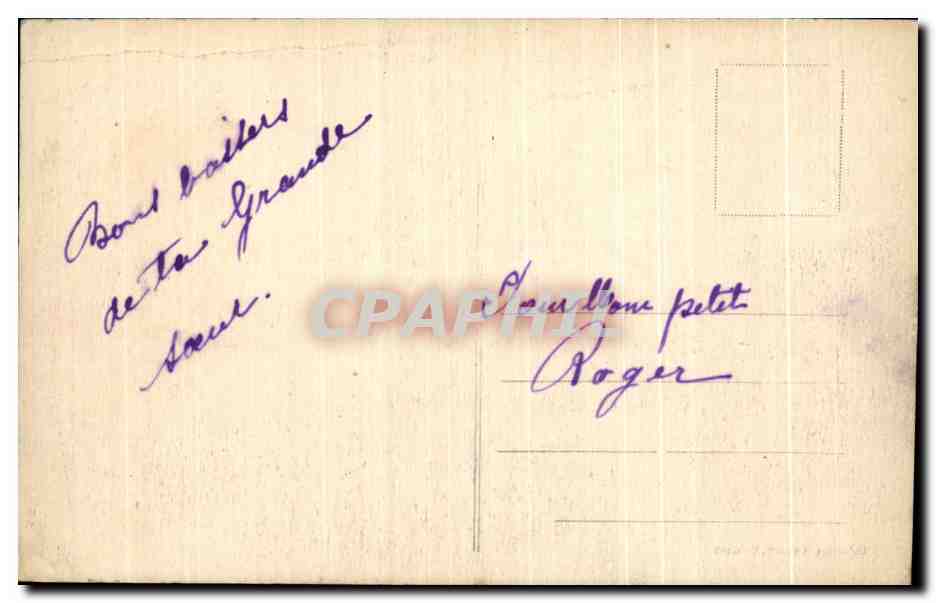 Bons baisers
de ta Grande
sœur.
CPAPHIL
Pour Mon petit
Roger